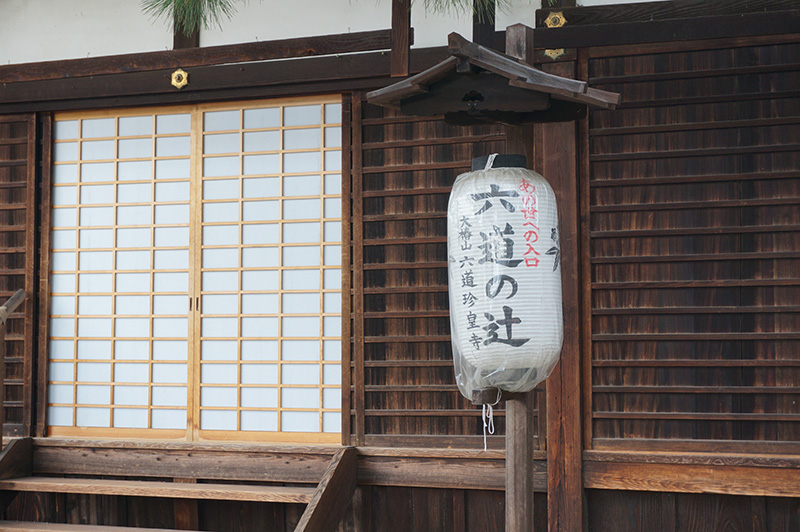 あの世への入口
六道の辻
大椿山 六道珍皇寺